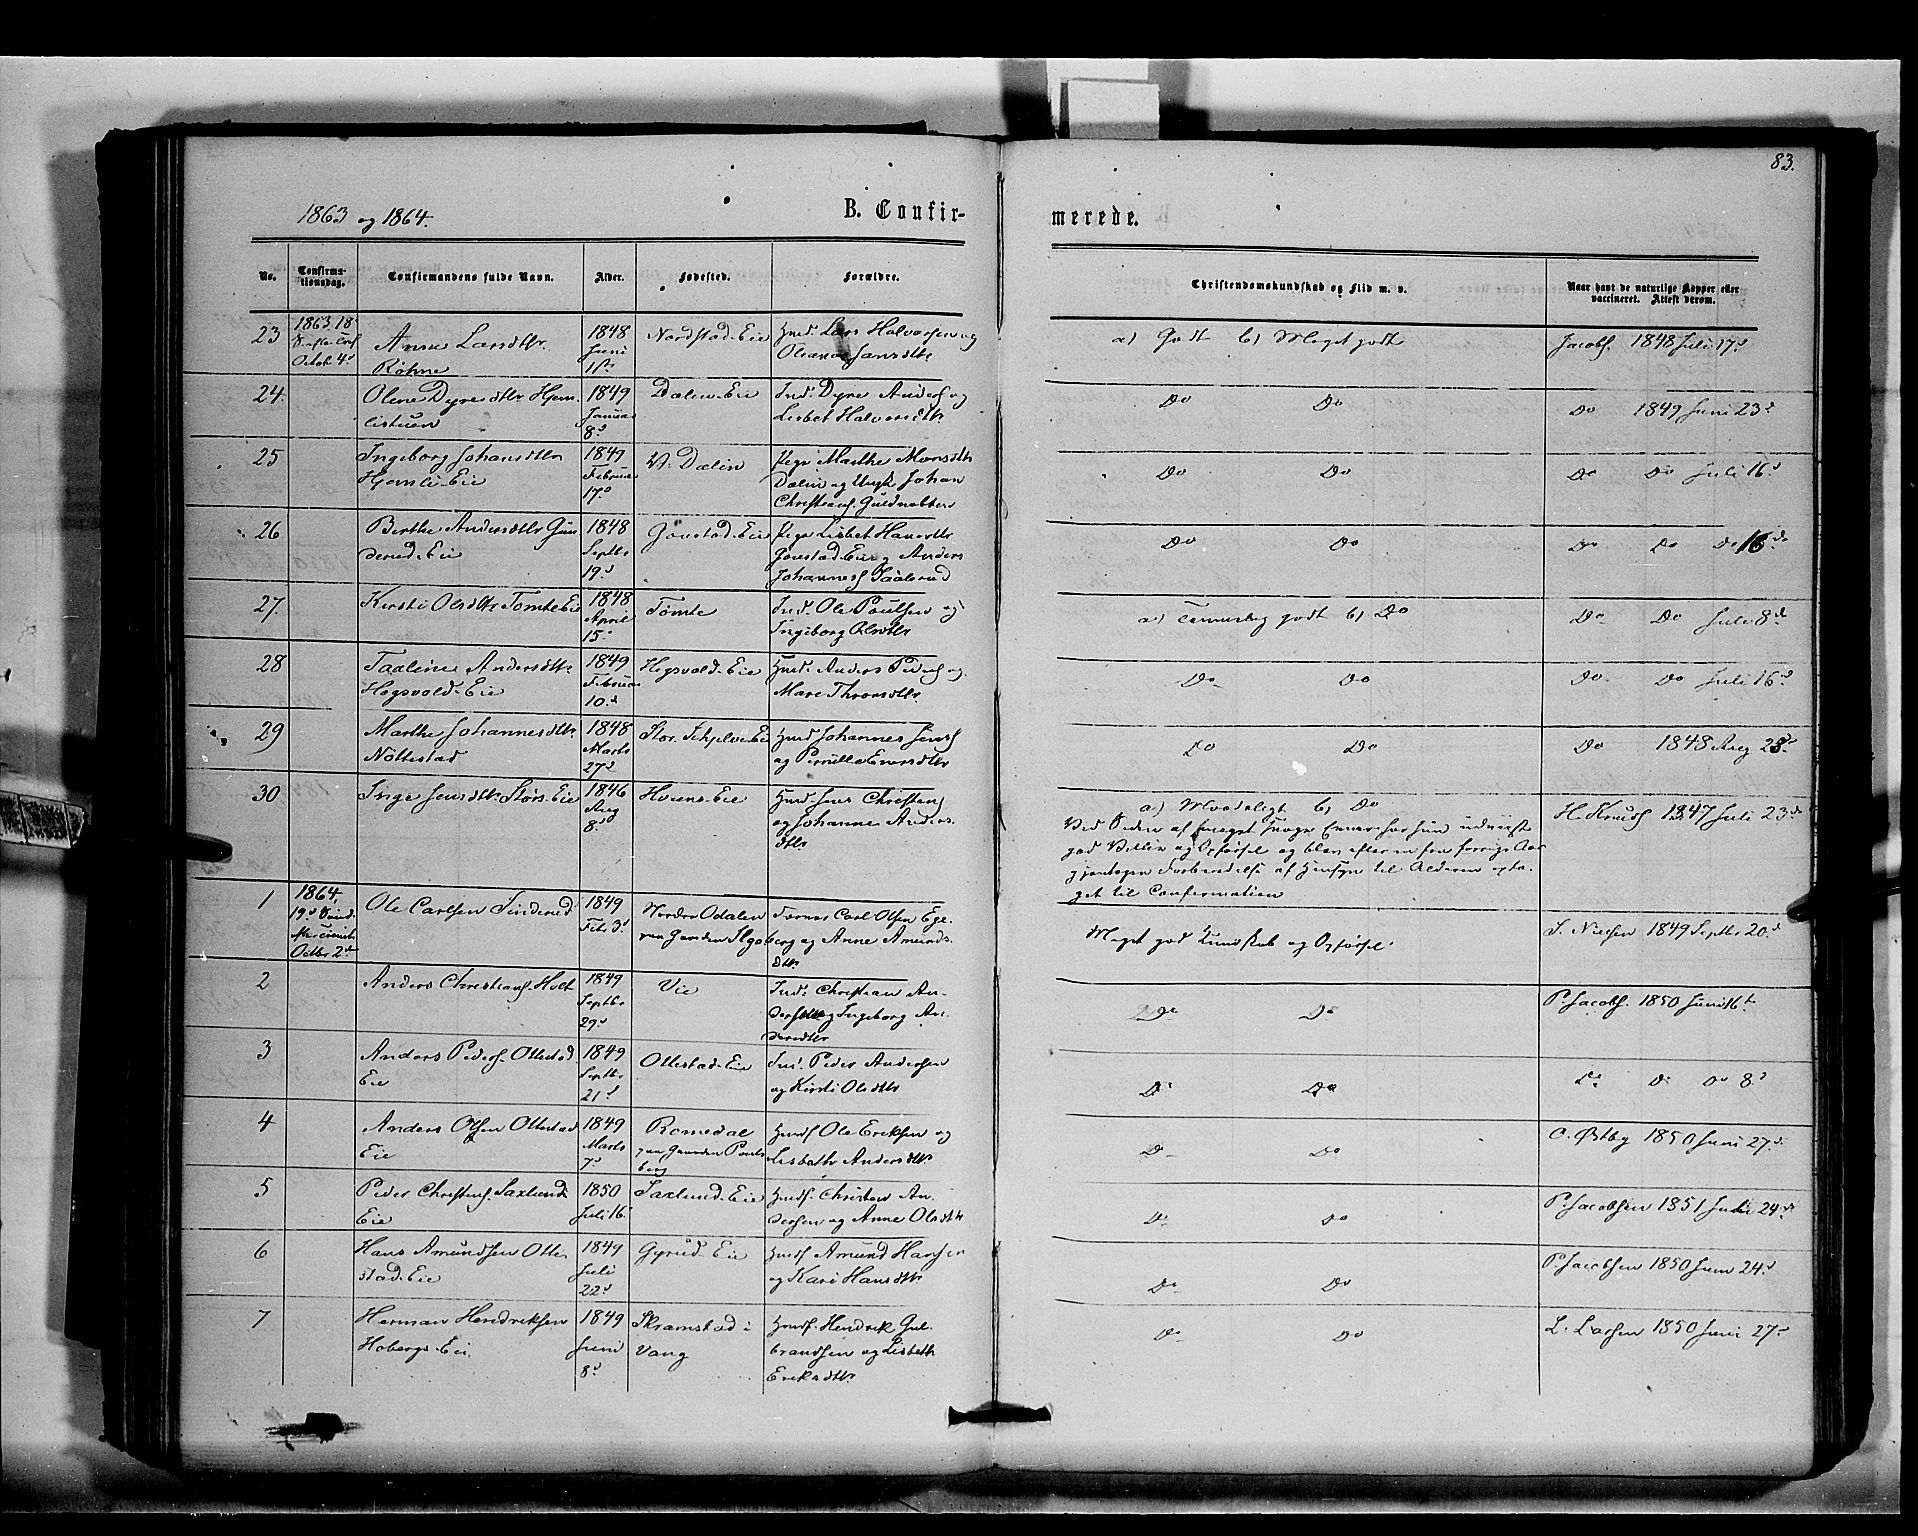 83.
1863 og 1864.
B. Confir-
merede.
No.
Confirma-
tionsdag.
Confirmandens fulde Navn.
Alder.
Fødested.
Forældre.
Christendomskundskab og Flid m. v.
Naar havt de naturlige Kopper eller
vaccineret. Attest derom.
23
1863 18
Octob 4d
Anne Larsdtr
Røhne
1848
Juni
11te
Nordstad-Eie
Husd. Lars Halvorsen og
Oleana Jansdtr
a) Godt b) Meget godt
Jacobs. 1848 Juli 17d
24.
Olene Dyresdtr Hjem-
listuen
1849
Januar
8d
Dælin-Eie
Ind. Dyre Anders. og
Lisbet Halvorsdtr
Do Do
Do 1849 Juni 23d
25
Ingeborg Johansdtr
Hjemli-Eie
1849
Februar
17d
V. Dælin
Pige Marthe Monsdtr
Dælin og Ungk Johan
Christians. Guldnabben
Do Do
Do Do Juli 16d
26
Berthe Andersdtr Gun
derud-Eie
1848
Septbr
19d
Gonstad-Eie
Pige Lisbet Hansdtr
Gonstad-Eie og Anders
Johannes. Saalerud
Do Do
Do Do Do 16de
27.
Kersti Olsdtr Tomte Eie
1848
April
15d
Tomte
Ind. Ole Poulsen og
Ingeborg Olsdtr
a) Temmelig godt b) Do
Do Do Juli 8d
28
Taaline Andersdtr
Hogsvold-Eie
1849
Februar
10d
Hogsvold-Eie
Husd. Anders Peders. og
Mare Thronsdtr
Do Do
Do Do Juli 16d
29
Marthe Johannesdtr
Nøttestad
1848
Marts
27d
Stor. Skjelve Eie
Husd Johannes Jens.
og Pernille Evensdtr
Do Do
Do 1848 Aug 28d
30
Inge Jensdtr Størs-Eie
1846
Aug
8d
Hvens-Eie
Husd Jens Christens.
og Johanne Anders
dtr
a) Maadeligt b) Do
Ved Siden af meget Evner har hun udviist
god Villie og Opførsel og blev efter en fra forrige Aar
gjentagen Forberedelse af Hensyn til Alderen opta-
get til Confirmation
H. Knuds. 1847 Juli 23de
1
1864,
19d Sønd.
Octbr 2den
Ole Carlsen Sinderud
1849
Feb 3d
Nordre Odalen
paa Gaarden
Carl Olsen Ege-
berg og Anne Amunds-
dtr
Meget god Kundskab og Opførsel
J. Nielsen 1849 Septbr 20d
2
Anders Christians. Holt
1849
Septbr
29d
Vie
Ind. Christian An-
dersen og Ingeborg An-
dersdtr
Do Do
P. Jacobs. 1850 Juni 16de
3
Anders Peders. Ottestad
Eie
1849
Septbr
21d
Ottestad-Eie
Ind. Peder Andersen
og Kersti Olsdtr
Do Do
Do Do Do 8d
4
Anders Olsen Ottestad
Eie
1849
Marts
7d
Romedal
paa Gaarden Pouls
berg
Husd. Ole Eriksen og
Lisbeth Andersdtr
Do Do
C. Østby 1850 Juni 27d
5
Peder Christens. Saxlund
Eie
1850
Juli 16
Saxlund-Eie
Husd. Christen An-
dersen og Anne Olsdtr
Do Do
P. Jacobsen 1851 Juli 24d
6
Hans Amundsen Otte-
stad-Eie
1849
Juli
22d
Gyrud-Eie
Husd. Amund Hansen
og Kari Hansdtr
Do Do
P. Jacobsen 1850 Juni 24d
7
Herman Hendriksen
Hobergs-Eie
1849
Juni
8d
Skramstad i
Vang
Husd. Hendrik Gul-
brandsen og Lisbeth
Eriksdtr
Do Do
L. Larsen 1850 Juni 27d